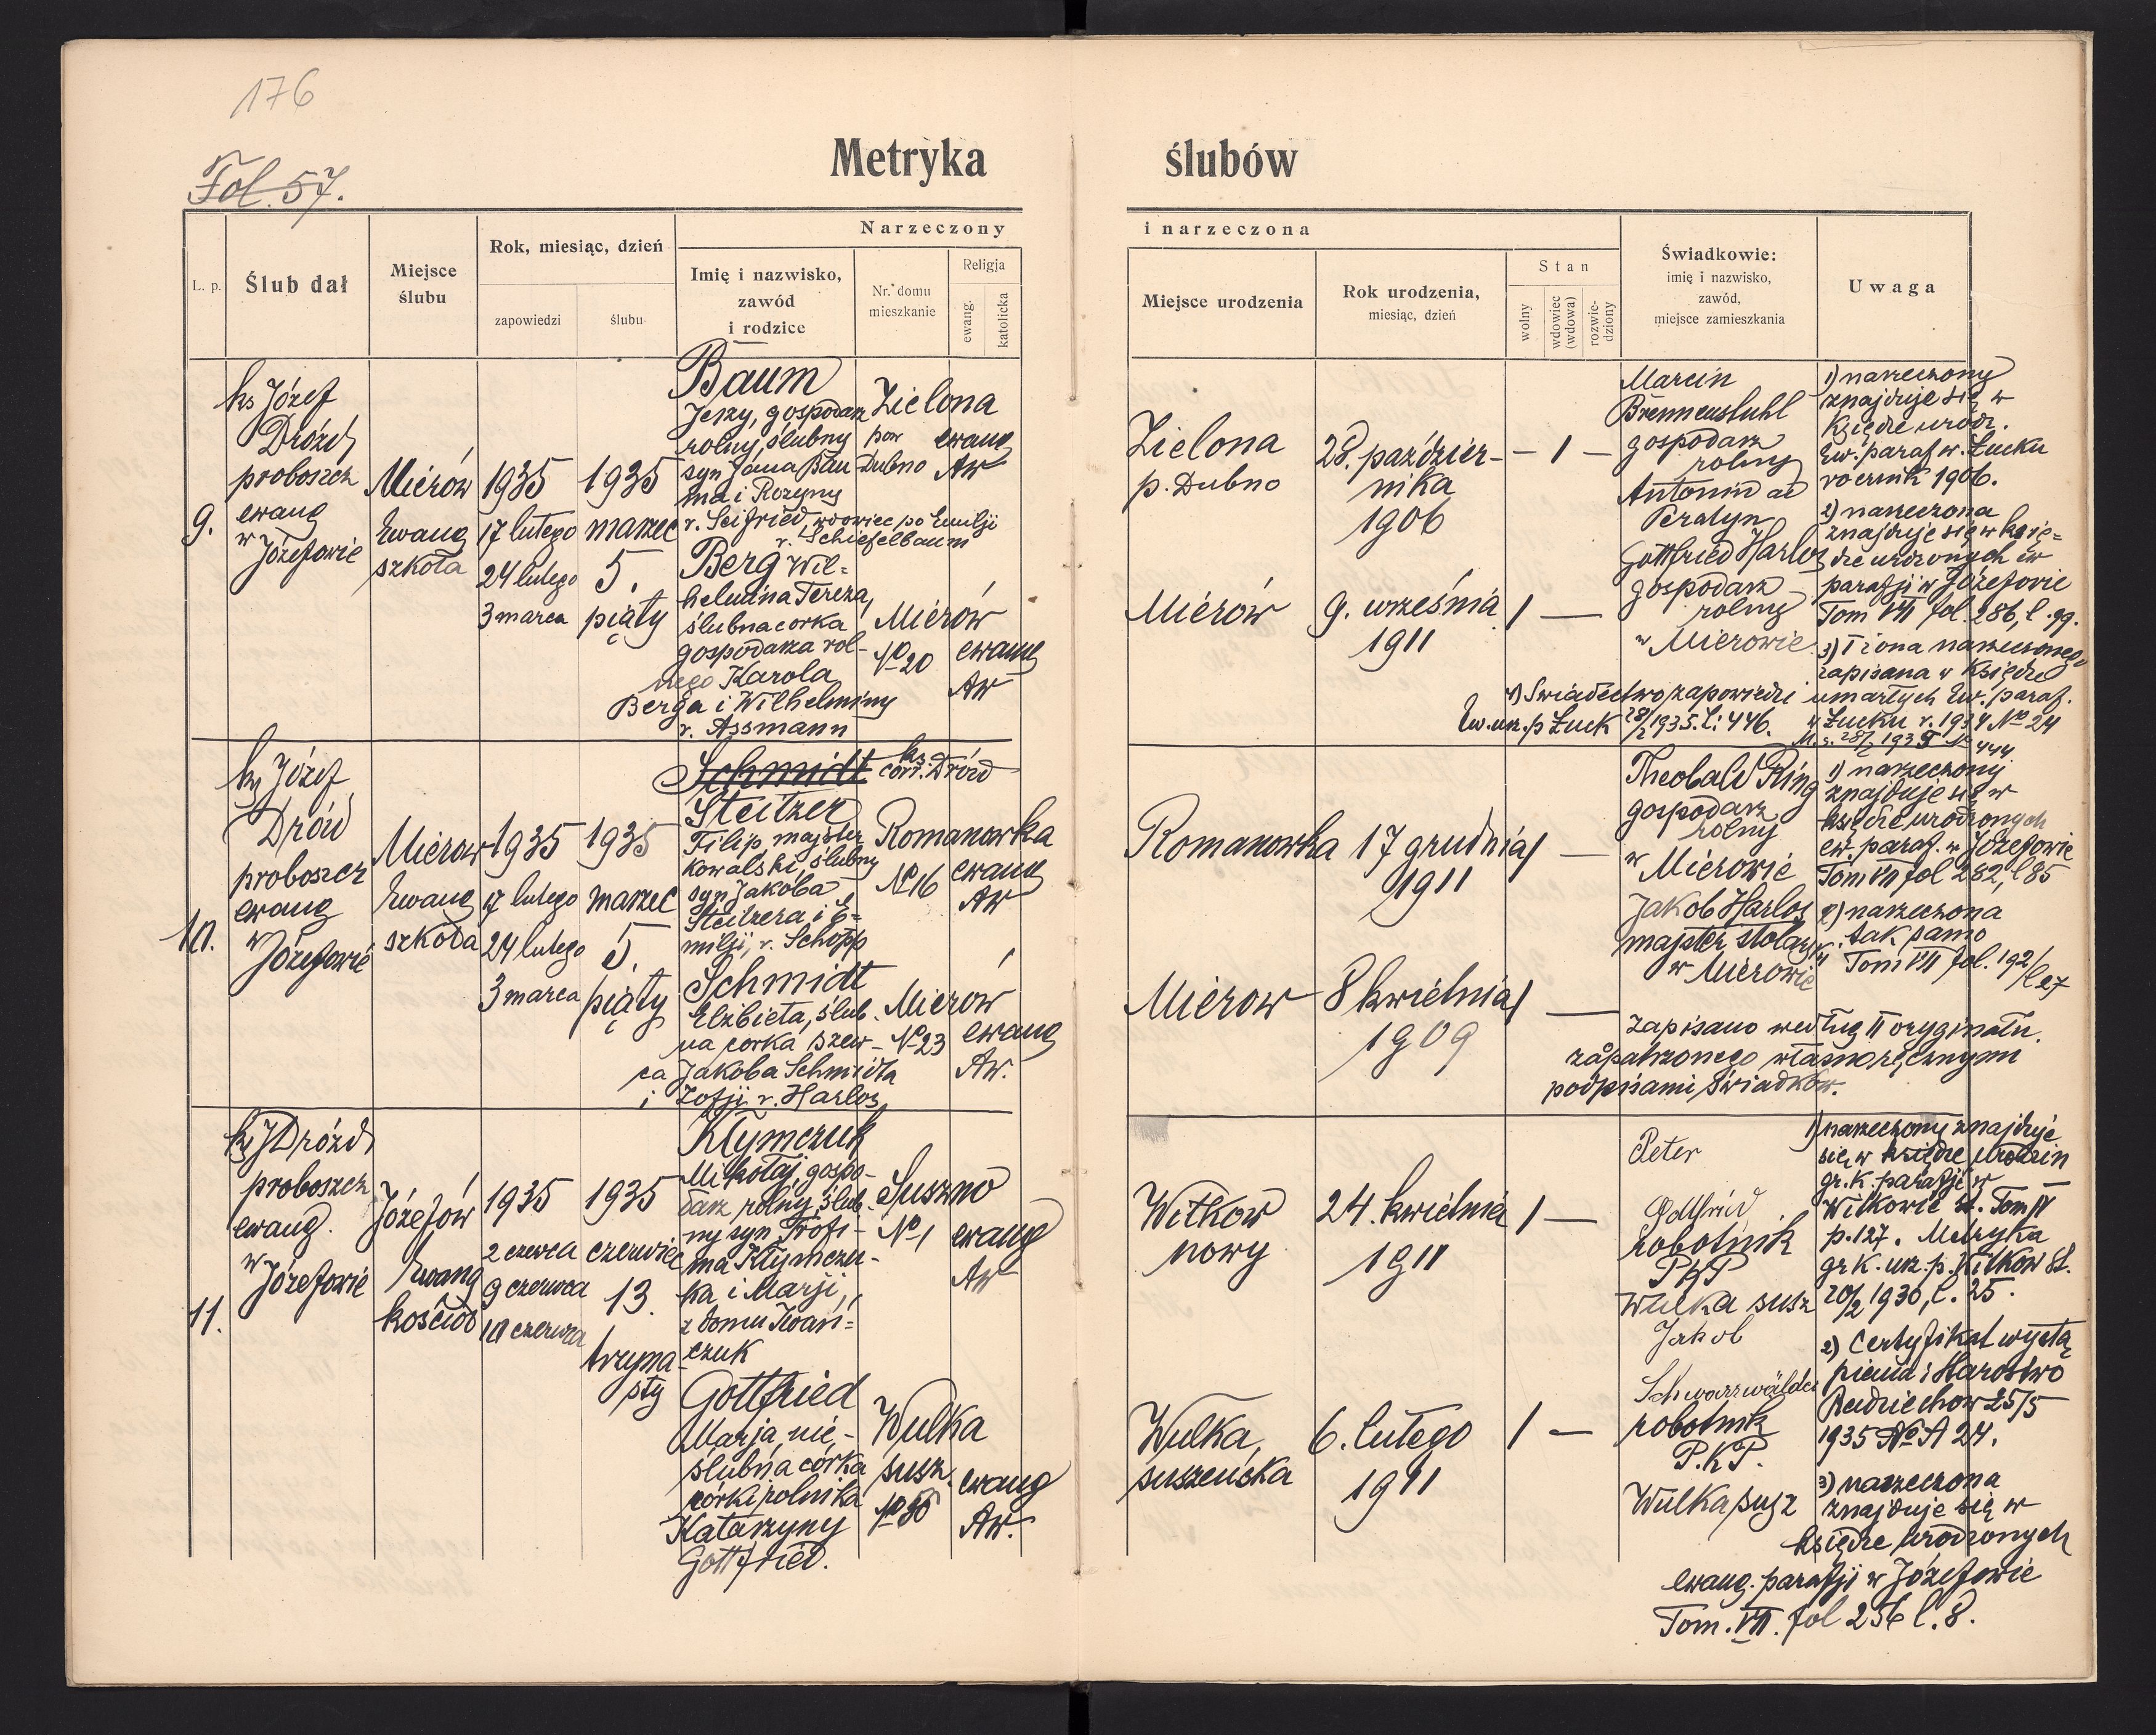 176
Fol. 57.
Metryka ślubów
Narzeczony i narzeczona
L. p.
Ślub dał
Miejsce
ślubu
Rok, miesiąc, dzień
zapowiedzi
ślubu
Imię i nazwisko,
zawód
i rodzice
Nr. domu
mieszkanie
Religja
ewang.
katolicka
Miejsce urodzenia
Rok urodzenia,
miesiąc, dzień
Stan
wolny
wdowiec
(wdowa)
rozwie-
dziony
Świadkowie:
imię i nazwisko,
zawód,
miejsce zamieszkania
Uwaga
9.
ks Józef
Drózd,
proboszcz
ewang
w
Józefowie
Mierów
Ewang
szkoła
1935
17 lutego
24 lutego
3 marca
1935
marzec
5.
piąty
Baum
Jerzy, gospodarz
rolny, ślubny
syn Jana Bau-
ma i Rozyny
r. Seifried, wdowiec po Emilji
r. Schiefelbaum
Zielona
pow
Dubno
ewang
Aw
Berg Wil=
helmina Tereza,
ślubna corka
gospodarza rol-
nego Karola
Berga i Wilhelminy
r. Assmann
Mierów
No 20
ewang
Aw
Zielona
p. Dubno
28. paździer-
nika
1906
- 1 -
Mierów
9. września
1911
1 —
Marcin
Brennenstuhl
gospodarz
rolny
Antonin ad
Peratyn
Gottfried Harlos
gospodarz
rolny
w Mierowie
1) narzeczony
znajduje się w
Księdze urodz.
Ew. paraf w. Łucku
rocznik 1906.
2) narzeczona
znajduje się w księ=
dze urodzonych ew
parafji w Józefowie
Tom VII fol. 286, l. 99.
3) I żona narzeczonego
zapisana w Księdze
umarłych Ew. paraf.
w Łucku r. 1934 No 24
4) Świadectwo zapowiedzi
Ew. urz. p Łuck 28/2 1935. L: 446.
10.
ks Józef
Drózd
proboszcz
ewang
w
Józefowie
Mierow
Ewang
szkoła
1935
17 lutego
24 lutego
3 marca
1935
marzec
5.
piąty
Schmidt
corr. ks. Drózd
Steitzer
Filip, majster
kowalski, ślubny
syn Jakóba
Steitzera i E=
milji, r. Schöpp
Romanowka
No 16
ewang
Aw
Schmidt
Elżbieta, ślub-
na corka szew-
ca Jakoba Schmidta
i Zofji r. Harlos
Mierow
No 23
ewang
Aw.
Romanowka
17 grudnia
1911
1 —
Mierow
8 kwietnia
1909
1 —
Theobald Ring
gospodarz
rolny
w
Mierowie
Jakob Harlos
majster stolarsk.
w Mierowie
1) narzeczony
znajduje się w
księdze urodzonych
ew. paraf. w Józefowie
Tom VII fol 282, l 85
2) narzeczona
tak samo
Tom VII fol. 192/
l 27
Zapisano według II oryginału.
zaopatrzonego własnoręcznymi
podpisami świadków.
11.
ks J Drózd
proboszcz
ewang.
w
Józefowie
Józefów
Ewang
kościoł
1935
2 czerwca
9 czerwca
10 czerwca
1935
czerwiec
13.
trzyna-
sty
Klymczuk
Mikołaj, gospo-
darz rolny, ślub-
ny syn Trofi-
ma Klymczu-
ka i Marji,
z domu Iwań=
czuk
Suszno
No 1
ewang
Aw
Gottfried
Marja, nie-
ślubna córka
córki rolnika
Katarzyny
Gottfried.
Wulka
susz.
No 30
ewang
Aw.
Witkow
nowy
24. kwietnia
1911
1 —
Wulka,
suszeńska
6. lutego
1911
1 —
Peter
Gottfried
robotnik
PKP
Wulka susz
Jakob
Schwarzwälder
robotnik
P.K.P.
Wulka susz
1) narzeczony znajduje
się w księdze urodzin
gr. k. parafji w
Witkowie st. Tom IV
p. 127. Metryka
gr K. urz. p. Witkow St.
20/2 1930, l. 25.
2) Certyfikat wystą
pienia: Starostwo
Radziechow 25/5
1935 No A 24.
3) narzeczona
znajduje się w
księdze urodzonych
ewang. parafji w Józefowie
Tom. VII. fol 256 l. 8.